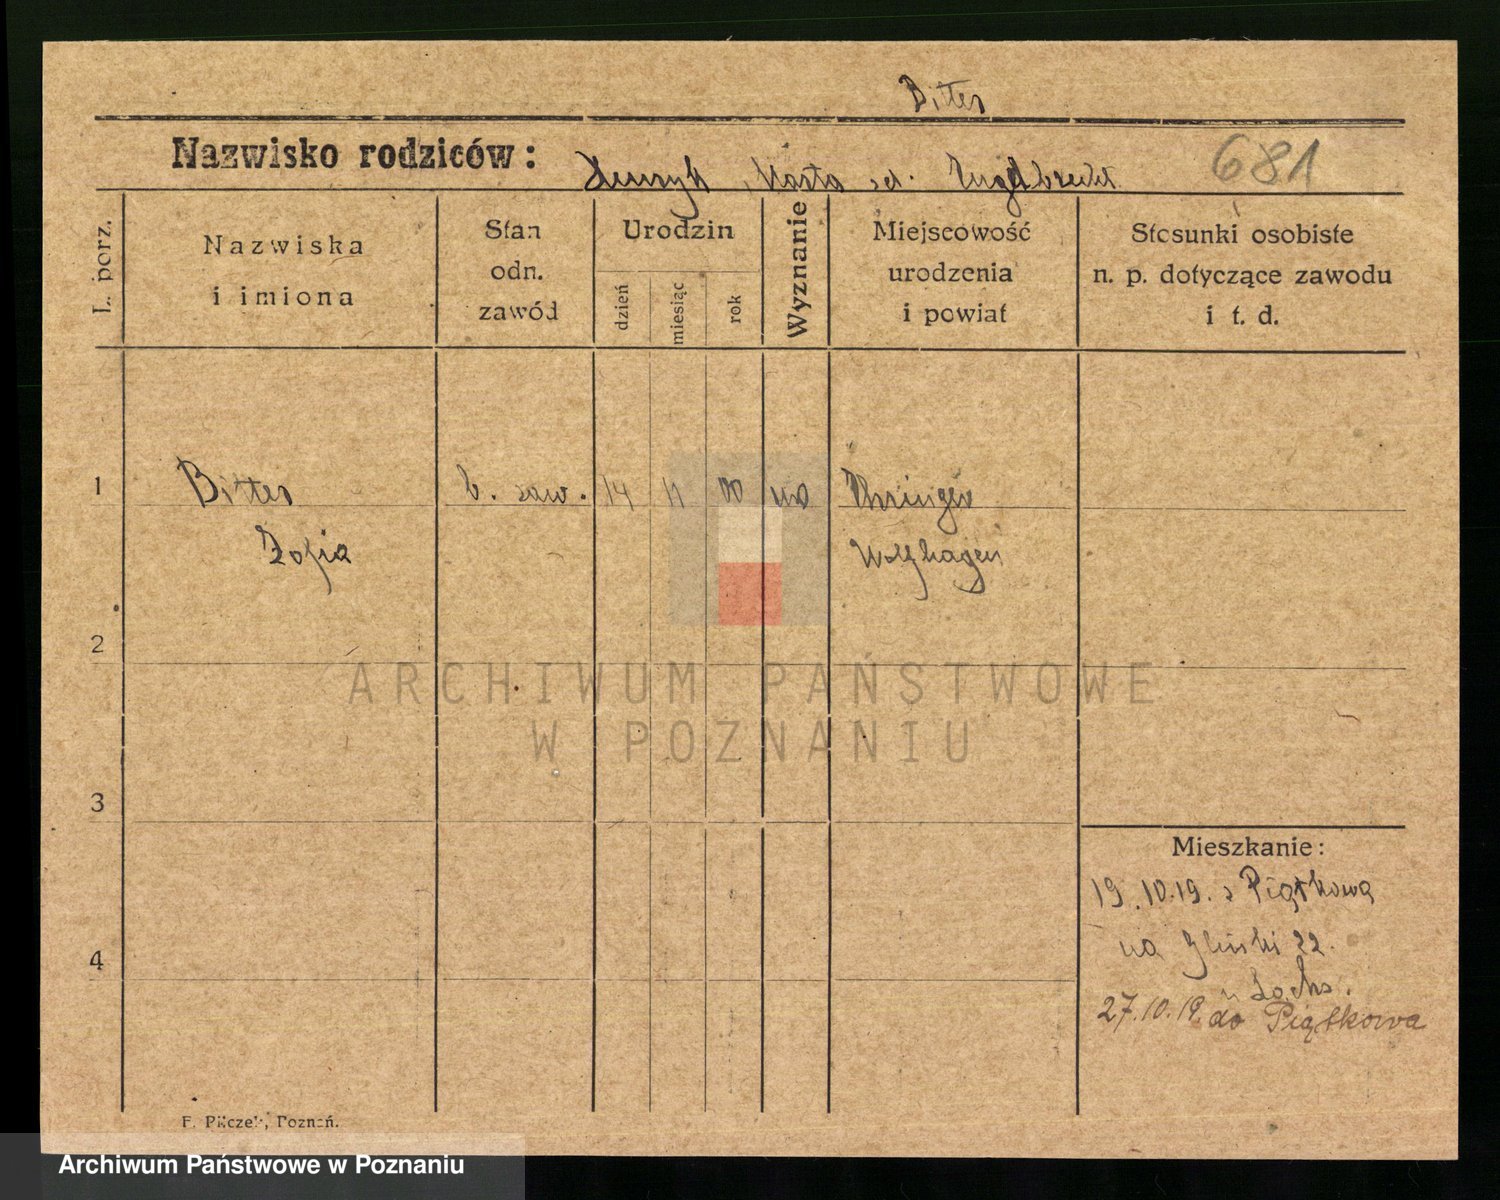 Bitter
Nazwisko rodziców: Henryk, Marta
681
L. porz.
Nazwiska
i imiona
Stan
odn.
zawód
Urodzin
dzień
miesiąc
rok
Wyznanie
Miejscowość
urodzenia
i powiat
Stosunki osobiste
n. p. dotyczące zawodu
i t. d.
1 Bitter b. zaw. 14 11 00
Zofia Wolfhagen
2
3
4
Mieszkanie:
19.10.19. z Piątkowa
na 22.
27.10.19. do Piątkowa
F. Pilczek, Poznań.
ARCHIWUM PAŃSTWOWE
W POZNANIU
Archiwum Państwowe w Poznaniu